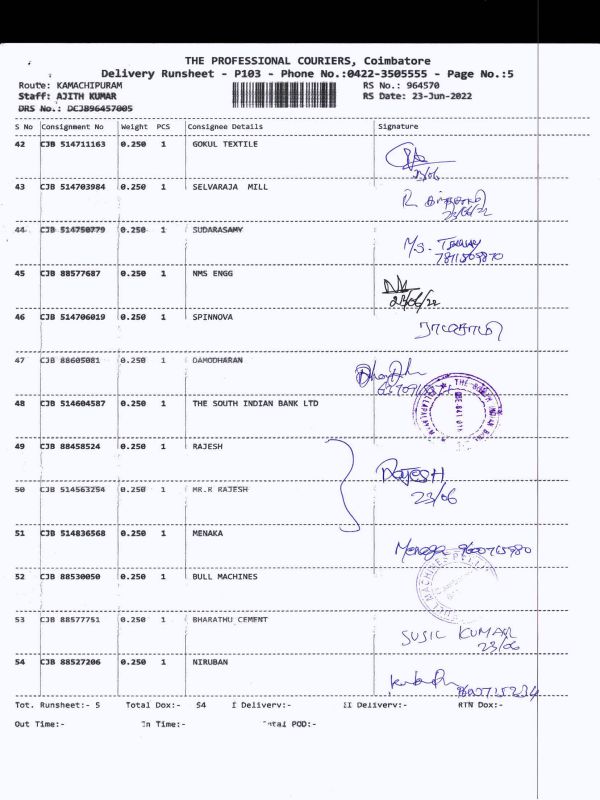 THE PROFESSIONAL COURIERS, Coimbatore
Delivery Runsheet - P103 - Phone No.:0422-3505555 - Page No.:5
Route: KAMACHIPURAM RS No.: 964570
Staff: AJITH KUMAR RS Date: 23-Jun-2022
DRS No.: DCJB96457005
S No Consignment No Weight PCS Consignee Details Signature
42 CJB 514711163 0.250 1 GOKUL TEXTILE
23/06
43 CJB 514703984 0.250 1 SELVARAJA MILL
23/06/22
44 CJB 514750779 0.250 1 SUDARASAMY
M.S.
45 CJB 88577687 0.250 1 NMS ENGG
23/06/22
46 CJB 514706019 0.250 1 SPINNOVA
47 CJB 88605081 0.250 1 DAMODHARAN
48 CJB 514604587 0.250 1 THE SOUTH INDIAN BANK LTD
49 CJB 88458524 0.250 1 RAJESH
RAJESH
50 CJB 514563254 0.250 1 MR.R RAJESH
23/06
51 CJB 514836568 0.250 1 MENAKA
Menaga 9600715980
52 CJB 88530050 0.250 1 BULL MACHINES
53 CJB 88577751 0.250 1 BHARATHU CEMENT
SUSIL KUMAR
23/06
54 CJB 88527206 0.250 1 NIRUBAN
Tot. Runsheet:- 5 Total Dox:- 54 I Delivery:- II Delivery:- RTN Dox:-
Out Time:- In Time:- Total POD:-